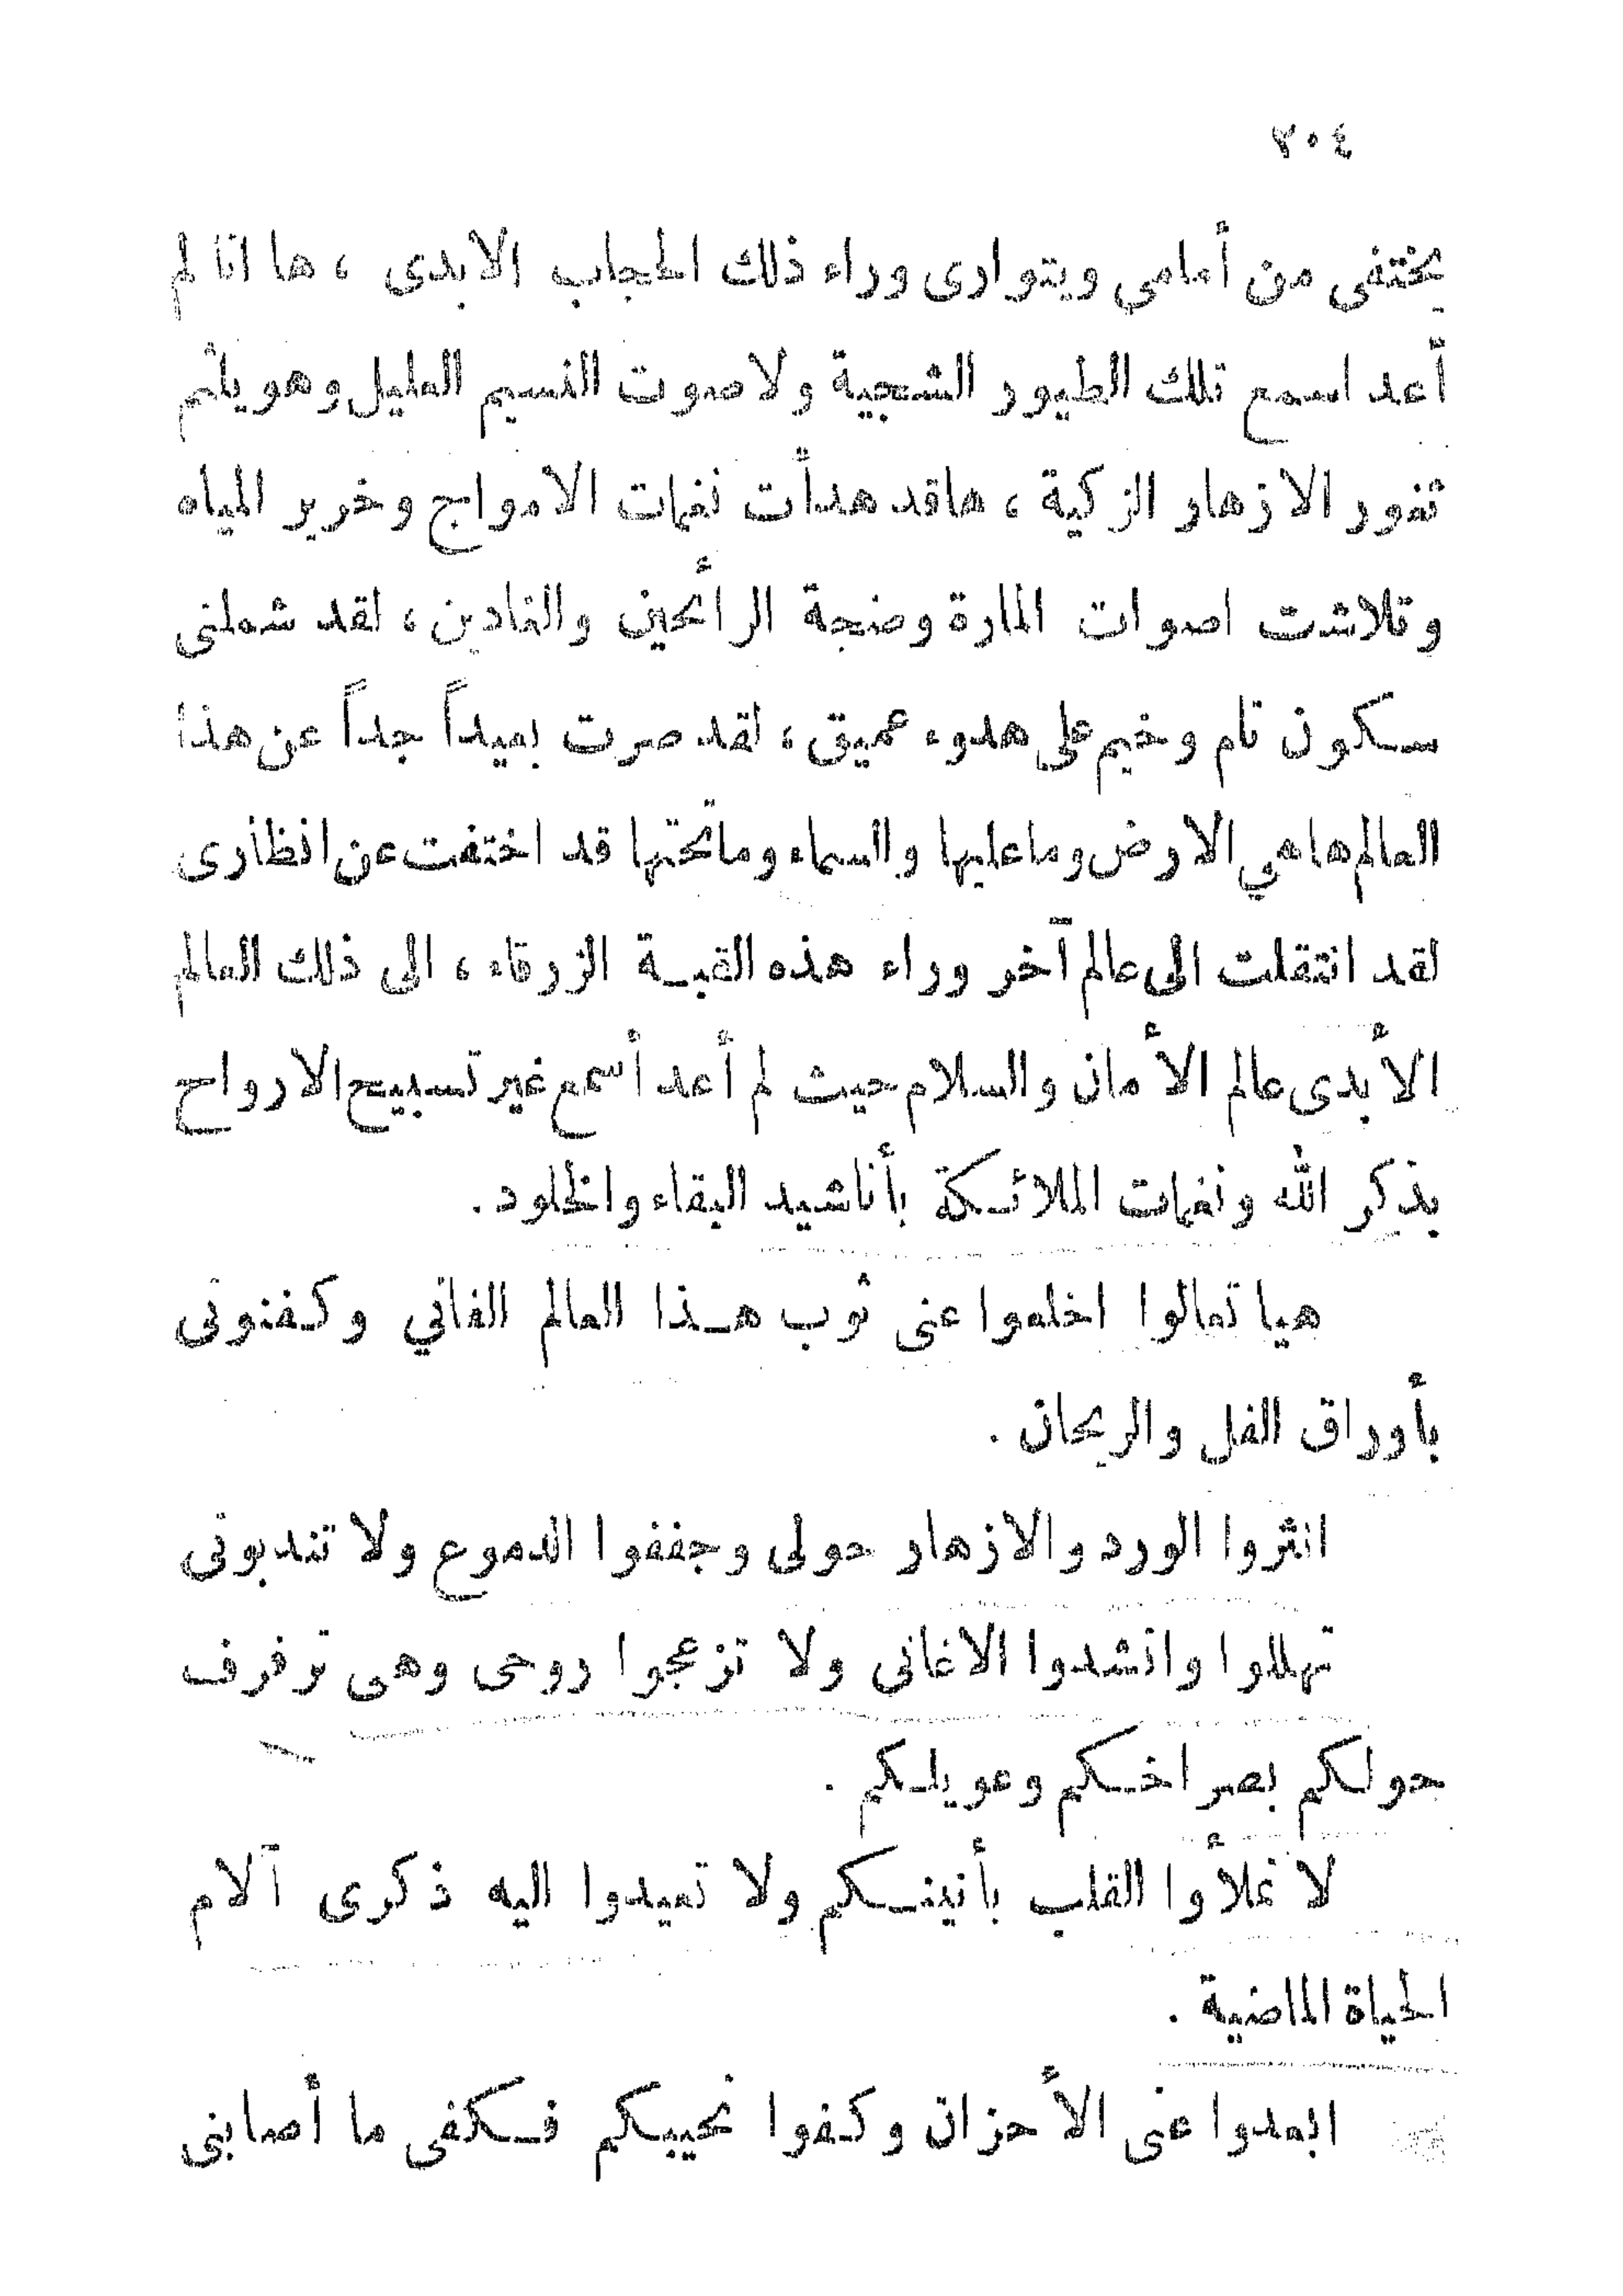 ٣٠٤
يختفى من أمامي ويتوارى وراء ذلك الحجاب الابدى ، ها انا لم
أعد اسمع تلك الطيور الشجية ولا صوت النسيم العليل وهو يلثم
ثغور الازهار الزكية ، هاقد هدأت نغمات الامواج وخرير المياه
وتلاشت اصوات المارة وضجة الرائحين والغادين ، لقد شملنى
سكون تام وخيم على هدوء عميق ، لقد صرت بعيداً جداً عن هذا
العالم هاهي الارض وماعليها والسماء وماتحتها قد اختفت عن انظارى
لقد انتقلت الى عالم آخر وراء هذه القبة الزرقاء ، الى ذلك العالم
الأبدى عالم الأمان والسلام حيث لم أعد أسمع غير تسبيح الارواح
بذكر الله ونغمات الملائكة بأناشيد البقاء والخلود .
هيا تعالوا اخلعوا عنى ثوب هذا العالم الفاني وكفنونى
بأوراق الفل والريحان .
انثروا الورد والازهار حولى وجففوا الدموع ولا تندبونى
تهللوا وانشدوا الاغانى ولا تزعجوا روحى وهى ترفرف
حولكم بصراخكم وعويلكم .
لا تملأوا القلب بأنينكم ولا تعيدوا اليه ذكرى آلام
الحياة الماضية .
ابعدوا عنى الأحزان وكفوا نحيبكم فكفى ما أصابنى